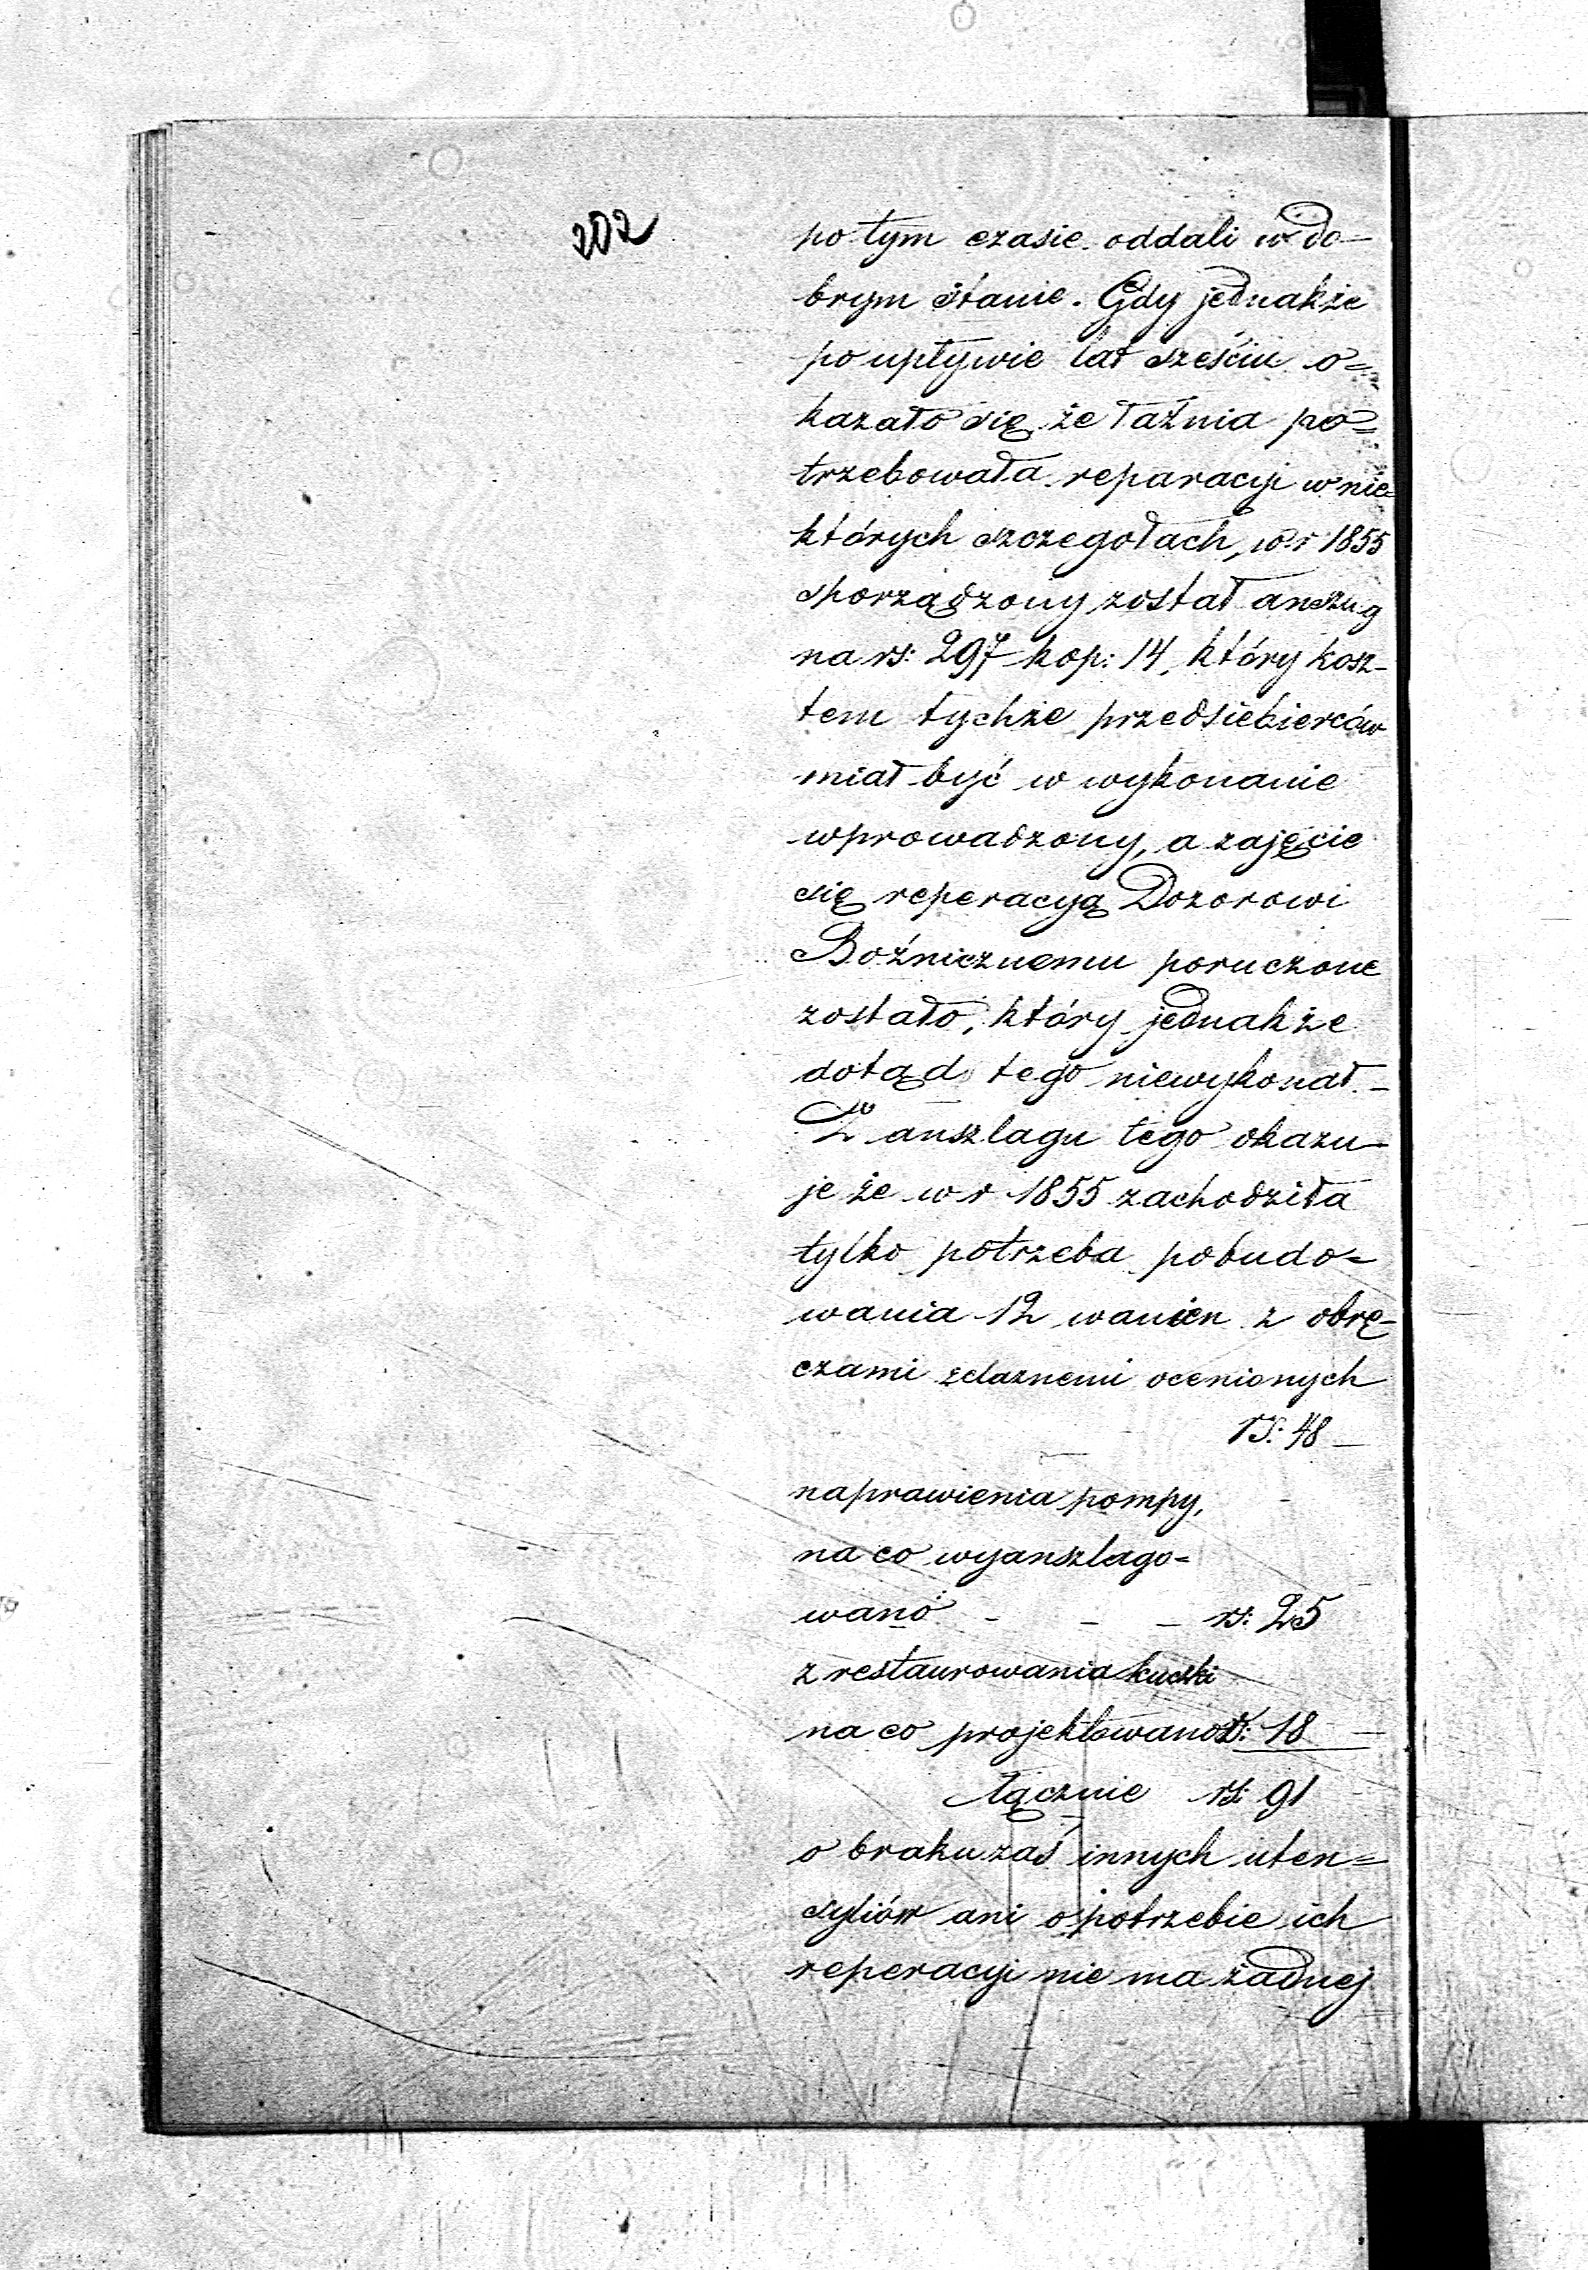 202
po tym czasie oddali w do-
brym stanie. Gdy jednakże
po upływie lat sześciu o=
kazało się że łaźnia po=
trzebowała reparacyi w nie=
których szczegołach, w r 1855
sporządzony został anszug
na rs: 297 kop: 14, który kosz-
tem tychże przedsiebierców
miał być w wykonanie
wprowadzony, a zajęcie
się reperacyą Dozorowi
Boźnicznemu poruczone
zostało, który jednakże
dotąd tego niewykonał. -
Z anszlagu tego okazu-
je że w r 1855 zachodziła
tylko potrzeba pobudo=
wania 12 wanien z obrę-
czami żelaznemi ocenionych
rs: 48 -
naprawienia pompy,
na co wyanszlago=
wano - - - rs: 25
zrestaurowania
na co projektowano rs: 18 -
łącznie rs: 91
o braku zaś innych uten=
syliów ani o potrzebie ich
reperacyi nie ma żadnej